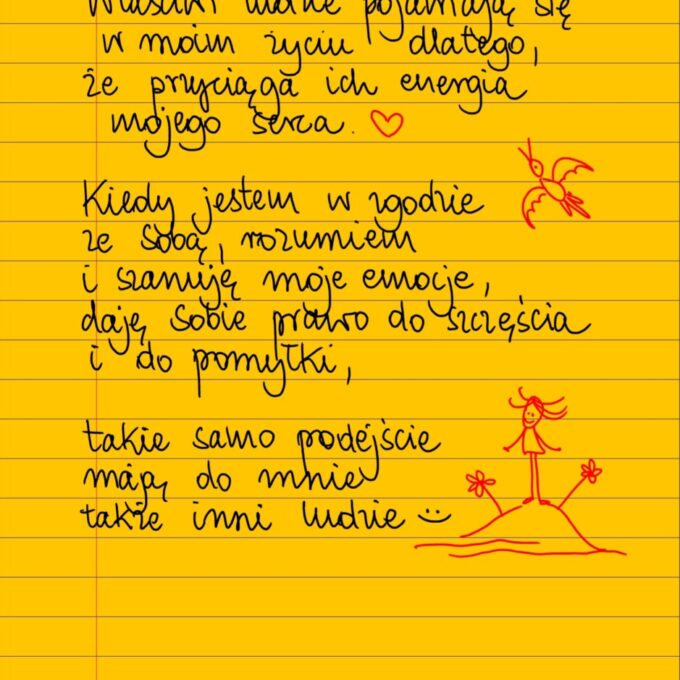 Właściwi ludzie pojawiają się
w moim życiu dlatego,
że przyciąga ich energia
mojego serca.
Kiedy jestem w zgodzie
ze sobą, rozumiem
i szanuję moje emocje,
daję sobie prawo do szczęścia
i do pomyłki,
takie samo podejście
mają do mnie
także inni ludzie :)